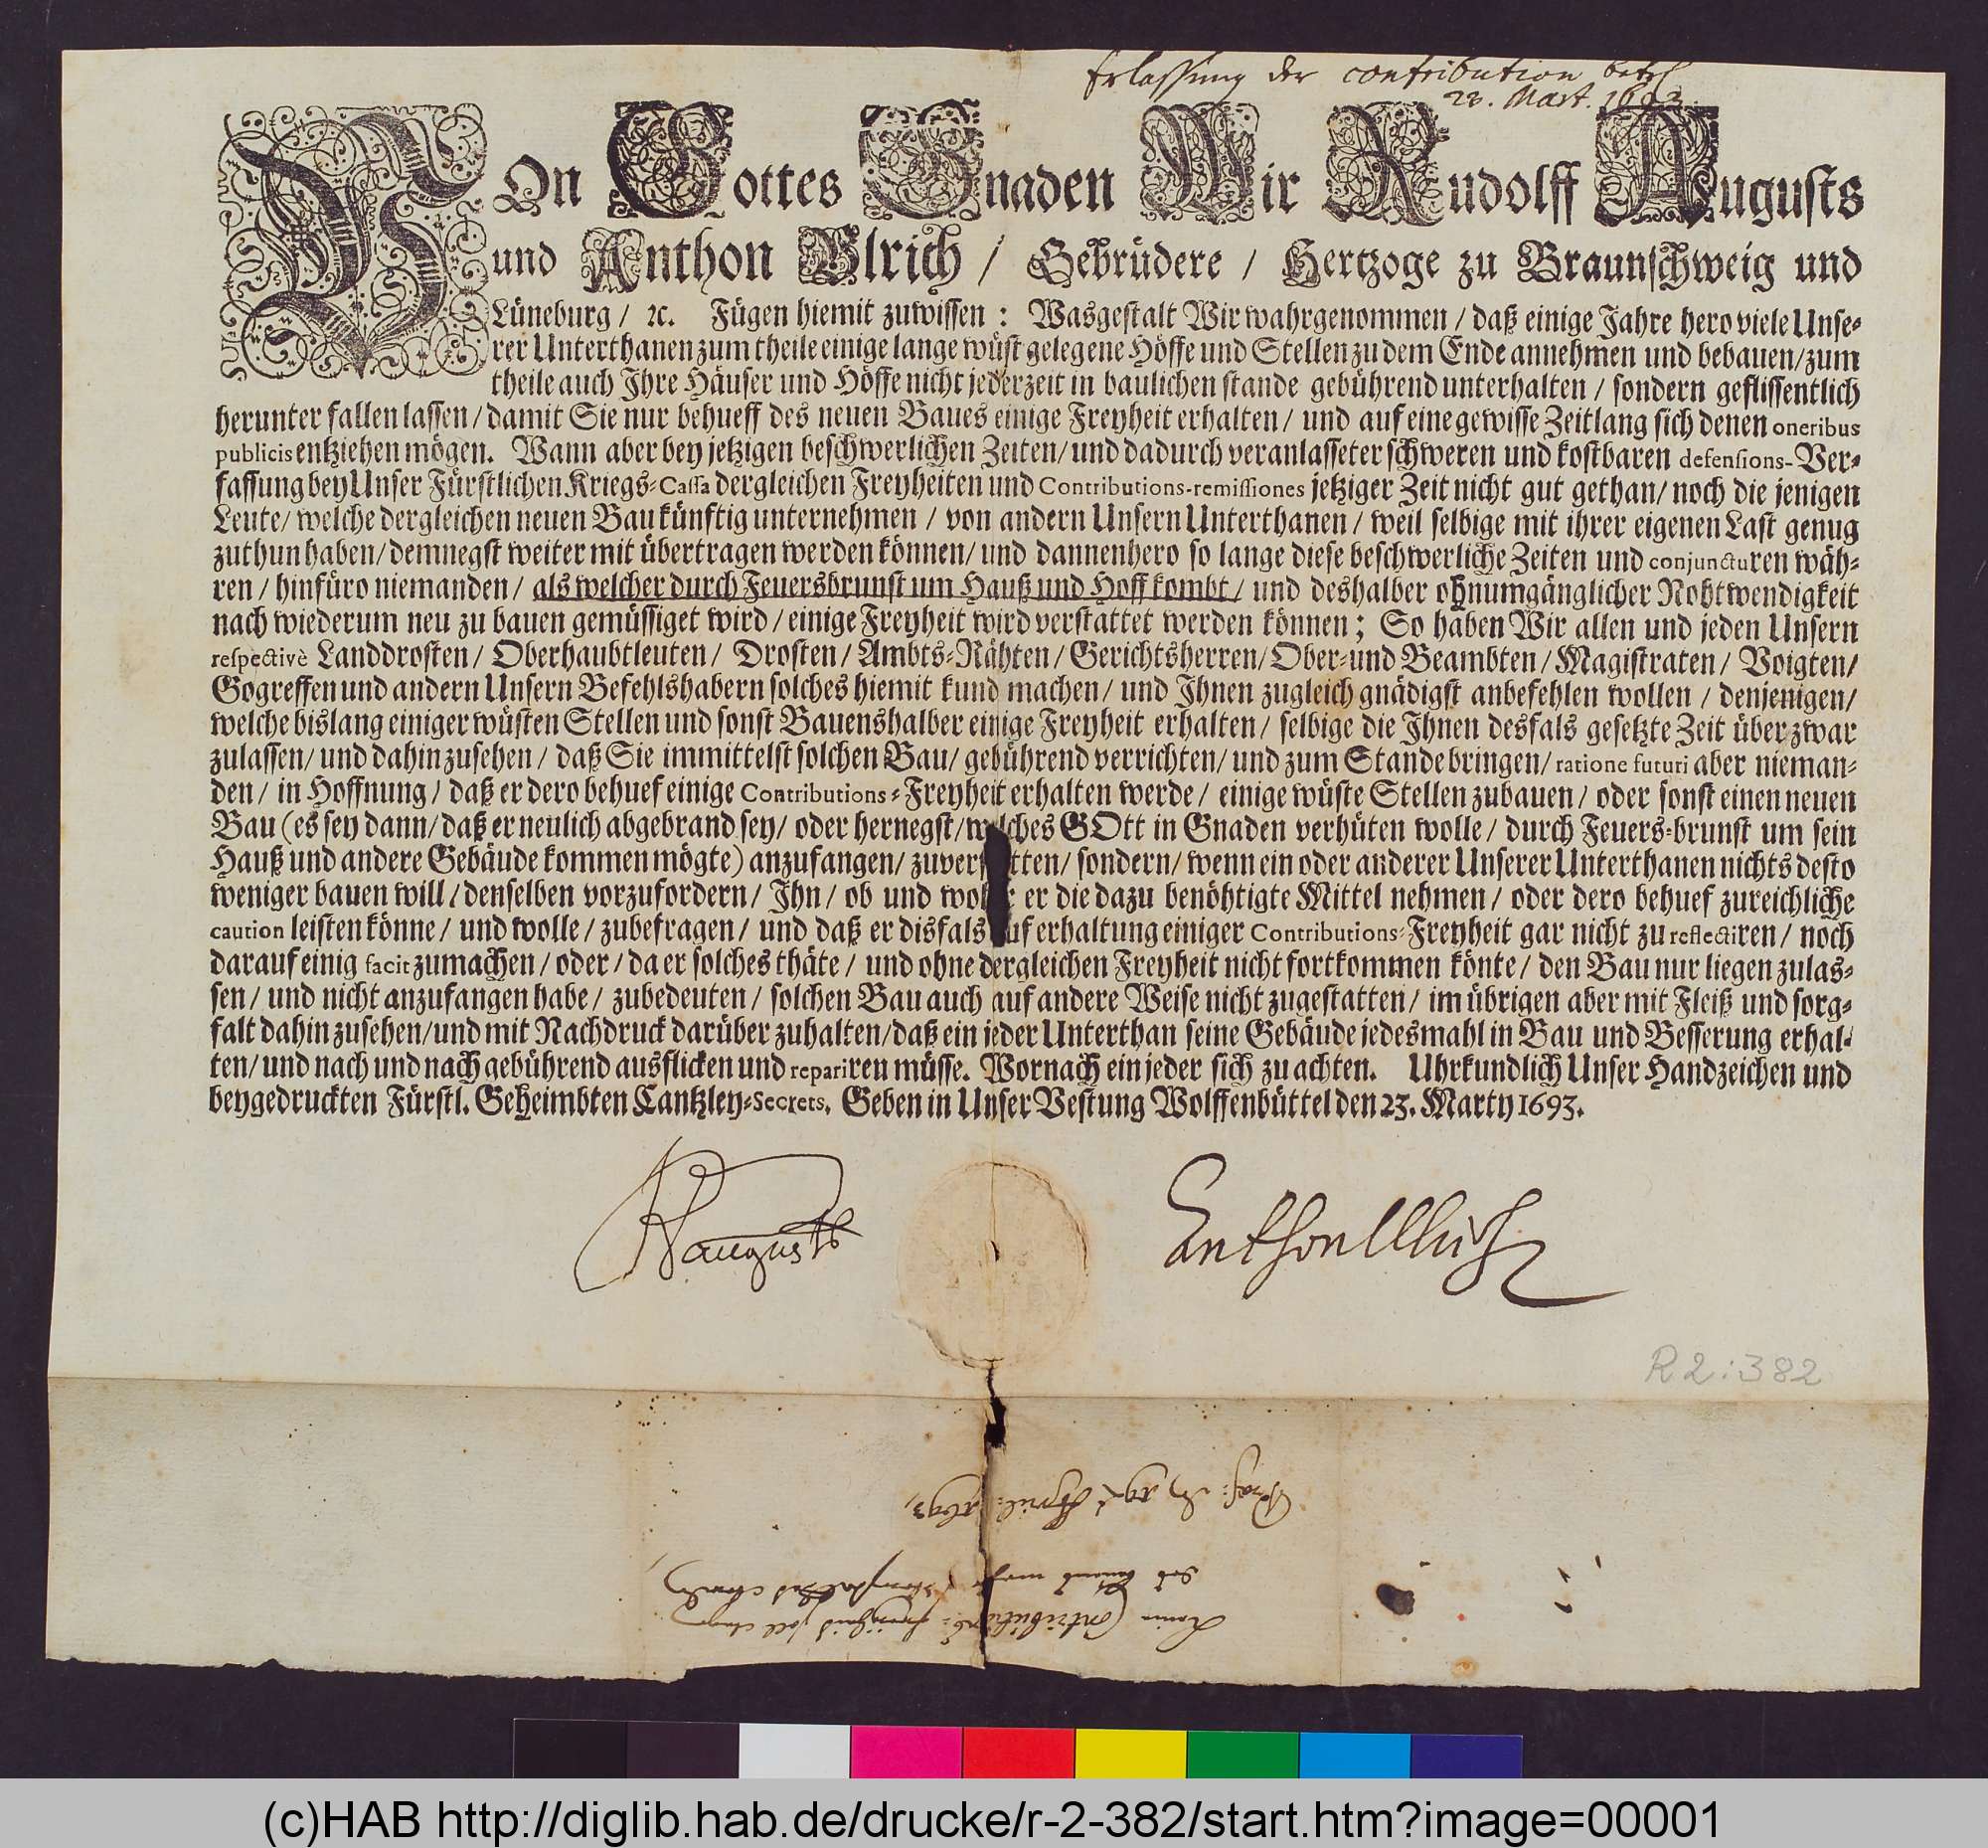 Erlassung der contribution betr.
23. Mart. 1693.
VOn Gottes Gnaden Wir Rudolff Augusts
und Anthon Ulrich / Gebrüdere / Hertzoge zu Braunschweig und
Lüneburg / ꝛc. Fügen hiemit zuwissen : Wasgestalt Wir wahrgenommen / daß einige Jahre hero viele Unse-
rer Unterthanen zum theile einige lange wüst gelegene Höffe und Stellen zu dem Ende annehmen und bebauen / zum
theile auch Ihre Häuser und Höffe nicht jederzeit in baulichen stande gebührend unterhalten / sondern geflissentlich
herunter fallen lassen / damit Sie nur behueff des neuen Baues einige Freyheit erhalten / und auf eine gewisse Zeitlang sich denen oneribus
publicis entziehen mögen. Wann aber bey jetzigen beschwerlichen Zeiten / und dadurch veranlasseter schweren und kostbaren defensions-Ver-
fassung bey Unser Fürstlichen Kriegs-Cassa dergleichen Freyheiten und Contributions-remissiones jetziger Zeit nicht gut gethan / noch die jenigen
Leute / welche dergleichen neuen Bau künftig unternehmen / von andern Unsern Unterthanen / weil selbige mit ihrer eigenen Last genug
zuthun haben / demnegst weiter mit übertragen werden können / und dannenhero so lange diese beschwerliche Zeiten und conjuncturen wäh-
ren / hinfüro niemanden / als welcher durch Feuersbrunst um Hauß und Hoff kombt / und deshalber ohnumgänglicher Nohtwendigkeit
nach wiederum neu zu bauen gemüssiget wird / einige Freyheit wird verstattet werden können ; So haben Wir allen und jeden Unsern
respectivè Landdrosten / Oberhaubtleuten / Drosten / Ambts-Rähten / Gerichtsherren / Ober-und Beambten / Magistraten / Voigten /
Gogreffen und andern Unsern Befehlshabern solches hiemit kund machen / und Ihnen zugleich gnädigst anbefehlen wollen / denjenigen /
welche bislang einiger wüsten Stellen und sonst Bauenshalber einige Freyheit erhalten / selbige die Ihnen desfals gesetzte Zeit über zwar
zulassen / und dahin zusehen / daß Sie immittelst solchen Bau / gebührend verrichten / und zum Stande bringen / ratione futuri aber nieman-
den / in Hoffnung / daß er dero behuef einige Contributions-Freyheit erhalten werde / einige wüste Stellen zubauen / oder sonst einen neuen
Bau (es sey dann / daß er neulich abgebrand sey / oder hernegst / welches GOtt in Gnaden verhüten wolle / durch Feuers-brunst um sein
Hauß und andere Gebäude kommen mögte) anzufangen / zuverstatten / sondern / wenn ein oder anderer Unserer Unterthanen nichts desto
weniger bauen will / denselben vorzufordern / Ihn / ob und woher er die dazu benöhtigte Mittel nehmen / oder dero behuef zureichliche
caution leisten könne / und wolle / zubefragen / und daß er disfals auf erhaltung einiger Contributions-Freyheit gar nicht zu reflectiren / noch
darauf einig facit zumachen / oder / da er solches thäte / und ohne dergleichen Freyheit nicht fortkommen könte / den Bau nur liegen zulas-
sen / und nicht anzufangen habe / zubedeuten / solchen Bau auch auf andere Weise nicht zugestatten / im übrigen aber mit Fleiß und sorg-
falt dahin zusehen / und mit Nachdruck darüber zuhalten / daß ein jeder Unterthan seine Gebäude jedesmahl in Bau und Besserung erhal-
ten / und nach und nach gebührend ausflicken und repariren müsse. Wornach ein jeder sich zu achten. Uhrkundlich Unser Handzeichen und
beygedruckten Fürstl. Geheimbten Cantzley-Secrets. Geben in Unser Vestung Wolffenbüttel den 23. Marty 1693.
RAugusts
Anthon Ulrich
R 2 : 382
Keine Contributions-freyheit soll
April: 1693,
(c)HAB http://diglib.hab.de/drucke/r-2-382/start.htm?image=00001